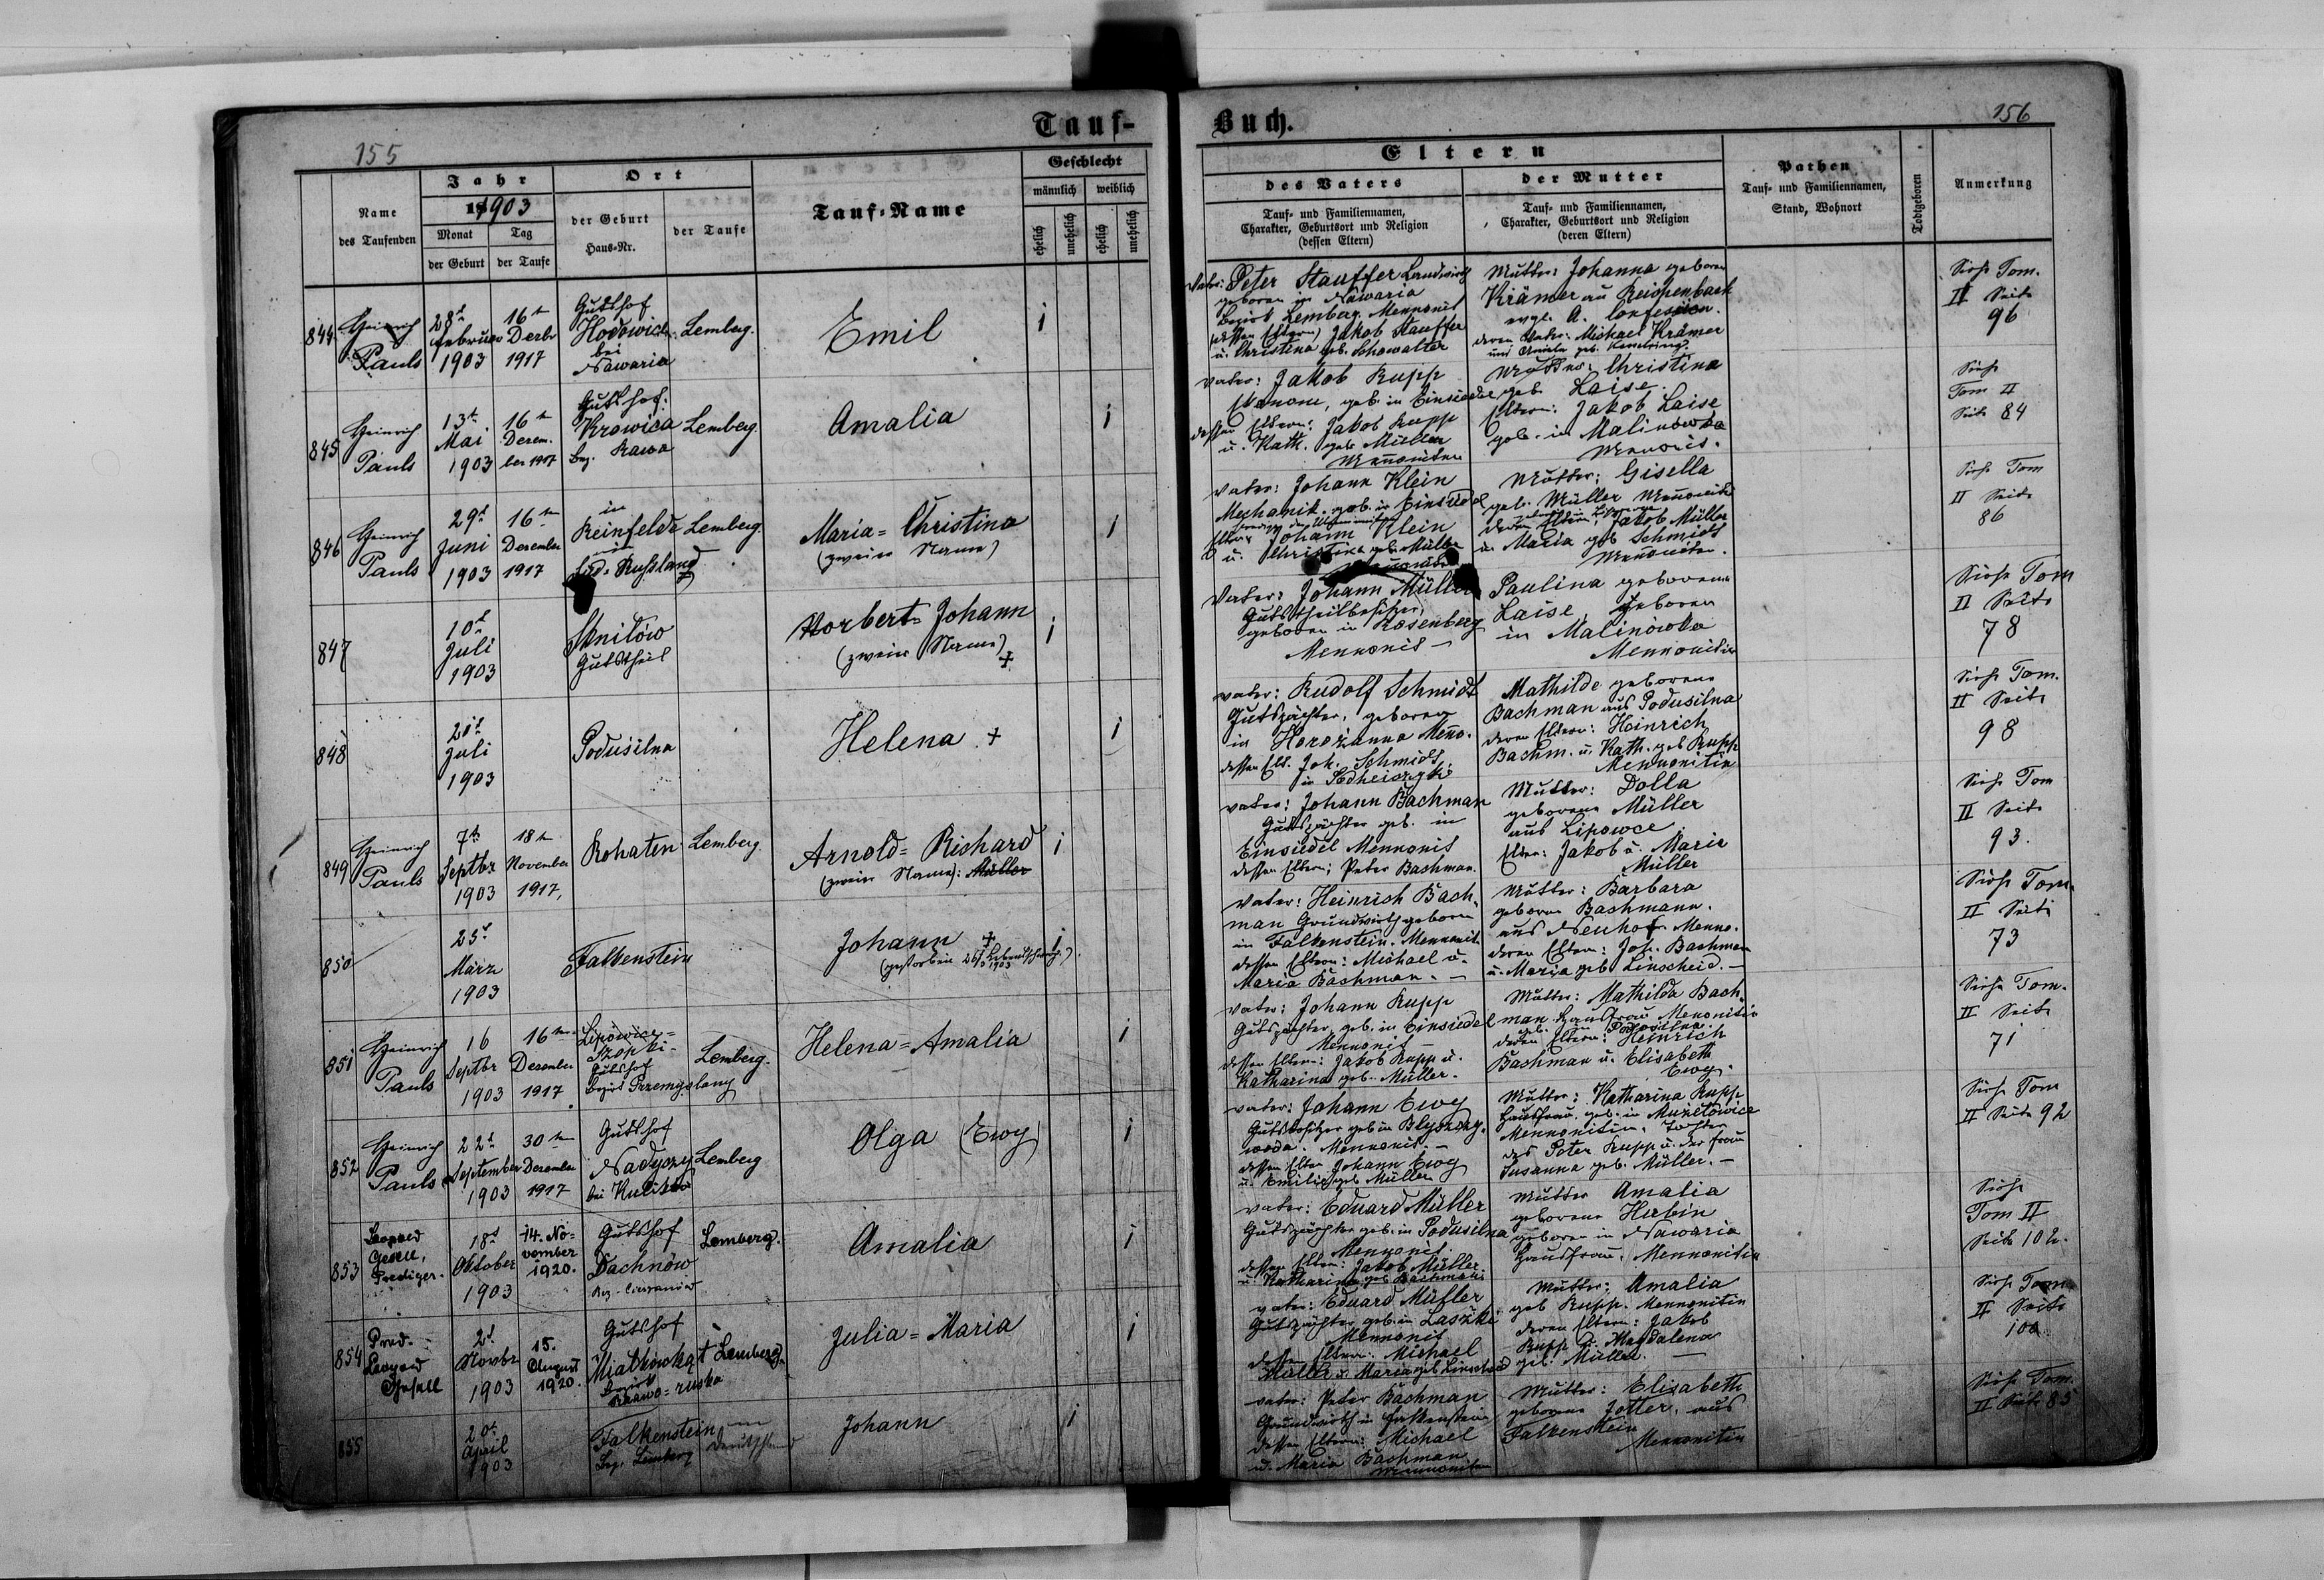 Tauf-
155
Name
des Taufenden
Jahr
1903
Monat
der Geburt
Tag
der Taufe
Ort
der Geburt
Haus-Nr.
der Taufe
Tauf-Name
Geschlecht
männlich
weiblich
ehelich
unehelich
ehelich
unehelich
844
Heinrich
Pauls
28t
Februar
1903
16tn
Dezbr
1917
Gutshof
Hodowice
bei
Nawaria
Lemberg.
Emil
1
845
Heinrich
Pauls
13t
Mai
1903
16tn
Dezem.
ber 1917
Gutshof.
Krowica
Bez. Rawa
Lemberg.
Amalia
1
846
Heinrich
Pauls
29t
Juni
1903
16tn
Dezember
1917
in
Reinfelde
in
Süd-Russland
Lemberg.
Maria=Christina
(zweier Name)
1
847
10t
Juli
1903
Sknilow
Gutstheil
Norbert=Johann
(zweier Name)
+
1
848
Juli
1903
Podusilna
Helena +
1
849
Heinrich
Pauls
7t
Septbr
1903
18tn
November
1917,
Rohatyn
Lemberg.
Arnold=Richard
(zweier Name): Müller
1
850
25t
März
1903
Falkenstein
Johann +
1
851
Heinrich
Pauls
16
Septbr
1903
16tn
Dezember
1917
Lipowice=
Szopki-
Gutshof
Bezirk Przemyslany
Lemberg.
Helena=Amalia
1
852
Heinrich
Pauls
22t
September
1903
30tn
Dezember
1917
Gutshof
Nadyczy
bei Kulikow
Lemberg
Olga (Ewy)
1
853
Leopold
Gesell,
Prediger.
18t
Oktober
1903
14. No=
vember
1920.
Gutshof
Dachnów
Bez. Cieszanów
Lemberg.
Amalia
1
854
Pred.
Leopold
Gesell
2t
Novbr
1903
15.
August
1920.
Gutshof
Bezirk
Rawa=ruska
Lemberg.
Julia=Maria
1
855
20t
April
1903
Falkenstein
Bez. Lemberg
Johann
1
Buch.
156
Eltern
des Vaters
Tauf- und Familiennamen,
Charakter, Geburtsort und Religion
(dessen Eltern)
der Mutter
Tauf- und Familiennamen,
Charakter, Geburtsort und Religion
(deren Eltern)
Pathen
Tauf- und Familiennamen,
Stand, Wohnort
Todtgeboren
Anmerkung
Vater: Peter Stauffer Landwirth
geboren in Nawaria
Bezirk Lemberg. Mennonit
(dessen Eltern) Jakob Stauffer
u. Christina geb. Schowalter
Mutter: Johanna geboren
Krämer aus Reichenbach
evgl. A. Confession.
deren Vater: Michael Krämer
Siehe Tom.
II Seite
96
Vater: Jakob Rupp
Ekonom, geb. in Einsiedel
dessen Eltern: Jakob Rupp
u. Kath. geb. Müller
Mennoniten
Mutter: Christina
geb. Laise.
Eltern: Jakob Laise
geb. in Malinowka
Mennonit.
Siehe
Tom II
Seite 84
Vater: Johann Klein
Mechanik. geb. in Einsiedel
Eltern Johann Klein
u. Christina geb. Müller
Mutter: Gisella
geb. Müller Mennonitin
deren Eltern: Jakob Müller
u. Maria geb Schmidt
Mennoniten.
Siehe Tom
II Seite
86
Vater: Johann Müller
Gutstheilbesitzer,
geboren in Rosenberg
Mennonit -
Paulina geborene
Laise, geboren
in Malinowka
Mennonitin
Siehe Tom
II Seite
78
Vater: Rudolf Schmidt
Gutspächter, geboren
in Horozanna Menno.
dessen Elt. Joh. Schmidt.
Mathilde geborene
Bachman aus Podusilna
deren Eltern: Heinrich
Bachm. u. Kath. geb Rupp
Mennonitin
Siehe Tom.
II Seite
98
Vater: Johann Bachman
Gutspächter geb. in
Einsiedel Mennonit
dessen Eltern; Peter Bachman.
Mutter: Dolla
geborene Müller
aus Lipowce
Eltern: Jakob u. Marie
Müller
Siehe Tom
II Seite
93.
Vater: Heinrich Bach-
man Grundwirth geboren
in Falkenstein. Mennonit.
dessen Eltern: Michael u.
Maria Bachman. -
Mutter: Barbara
geborene Bachmann.
aus Neuhof. Menno.
deren Eltern: Joh. Bachman
u. Maria geb Linscheid. -
Siehe Tom.
II Seite
73
Vater: Johann Rupp
Gutspächter geb. in Einsiedel
Mennonit -
dessen Eltern: Jakob Rupp u.
Katharina geb. Müller.
Mutter: Mathilda Bach-
man Hausfrau Menonitin
geb. in Podusilna.
deren Eltern: Heinrich
Bachman u. Elisabeth
Ewy.
Siehe Tom.
II Seite
71
Vater: Johann Ewy
Gutsbesitzer geb in Blyszczy-
woda. Mennonit. -
dessen Eltern Johann Ewy
u. Emilie geb Müller
Mutter: Katharina Rupp
Hausfrau, geb. in Muzelowice
Mennonitin. Tochter
des Peter Rupp u. der Frau
Susanna geb. Müller. -
Siehe Tom
II Seite 92
Vater: Eduard Müller
Gutspächter geb. in Podusilna
Mennonit.
dessen Eltern: Jakob Müller.
u. Katharina geb Bachmann
Mutter Amalia
geborene Hubin
geboren in Nawaria
Hausfrau. Mennonitin
Siehe
Tom II
Seite 102.
Vater: Eduard Müller
Gutspächter geb. in Laszki.
Mennonit
dessen Eltern: Michael
Müller u. Maria geb Linscheid
Mutter: Amalia
geb Rupp. Mennonitin
deren Eltern: Jakob
Rupp u. Magdalena
geb. Müller. -
Siehe Tom
II Seite
100
Vater: Peter Bachman
Grundwirth in Falkenstein
dessen Eltern: Michael
u. Maria Bachman.
Mennoniten
Mutter: Elisabeth
geborene Jotter. aus
Falkenstein
Mennonitin
Siehe Tom.
II Seite 85